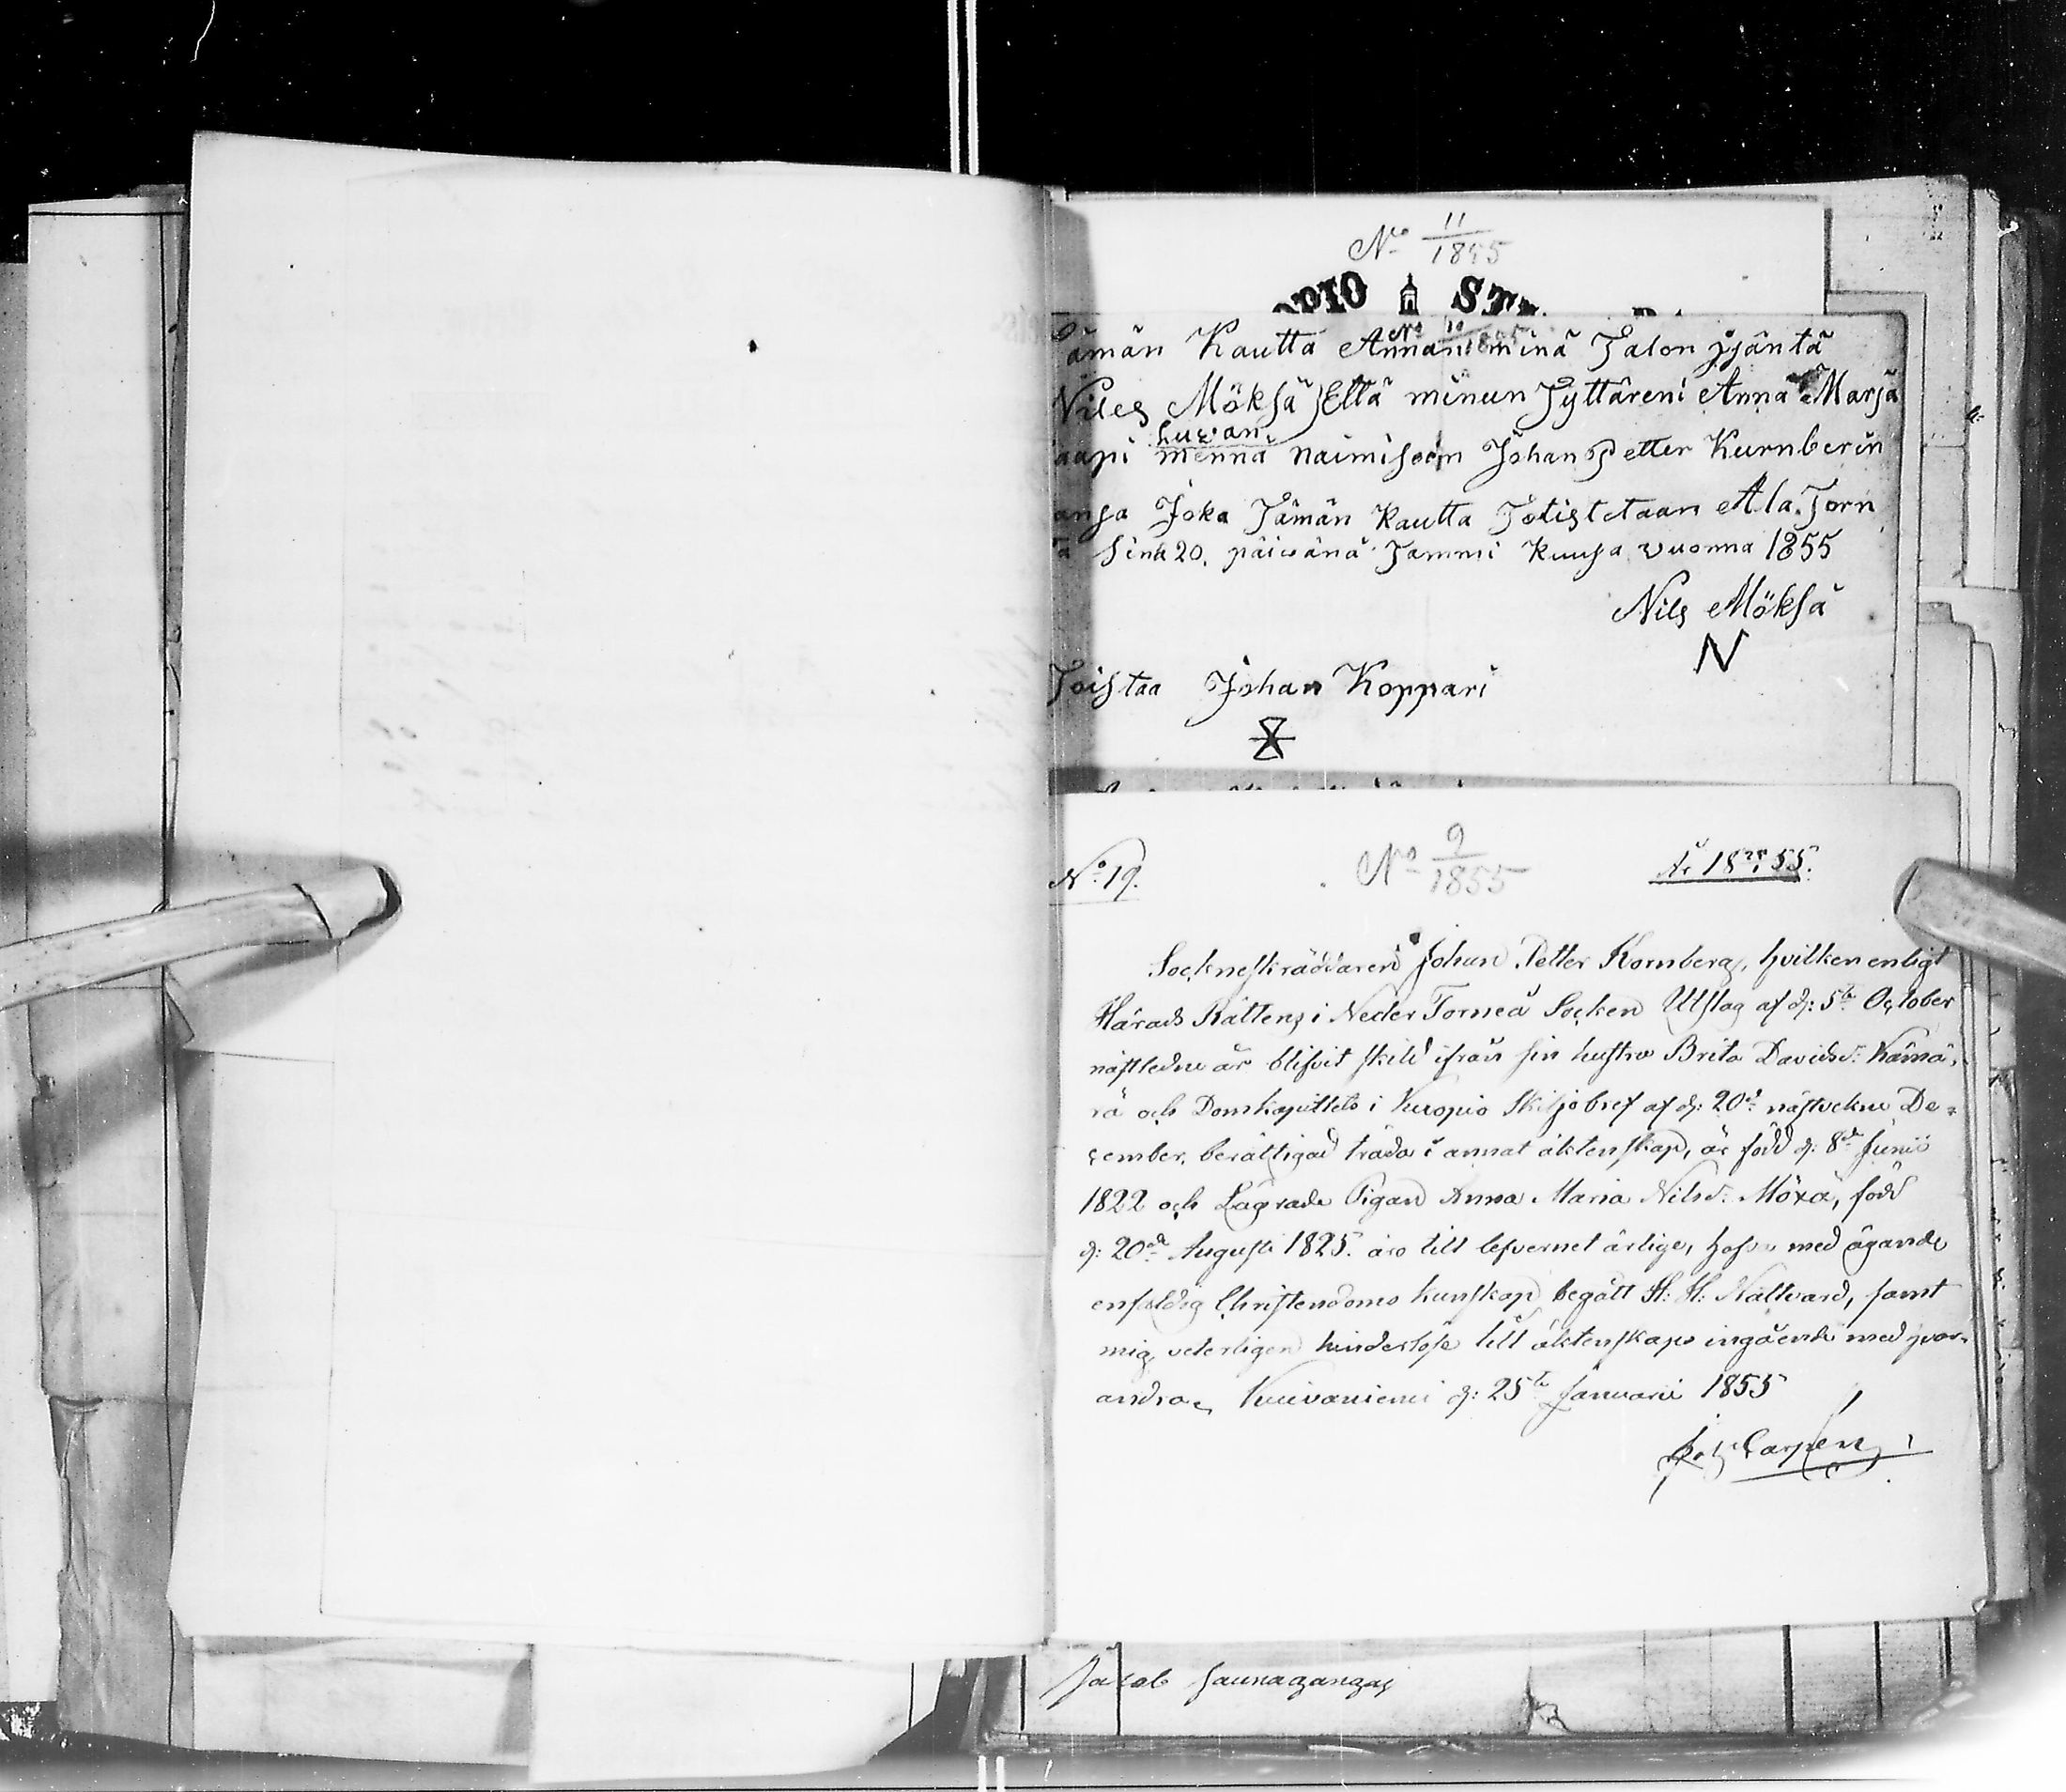 No 11/1855
OPIO STI
No 10/1855
ämän Kautta Annan minä Talon jsäntä
Niles Möksä Että minun Tyttäreni Anna Marja
luwan
aapi menna naimiseen Johan Petter Kurnberin
ansa Joka Tämän Kautta Totistetaan Ala Torn
ä Sinä 20. päiwänä Tammi kuusa vuonna 1855
Nils Möksä
N
Toistaa Johan Koppari
No 19.
No 9/1855
År 1855.
Sockneskräddaren Johan Petter Kornberg, hvilken enligt
Härads Rättens i Neder Torneå Socken Utslag af d: 5te October
nästledne år blifvit skild ifrån sin hustru Brita Davidsd: Kämä-
rä och Domkapitlets i Kuopio Skiljobref af d: 20de nästvekne De=
cember, berättigad träda i annat äktenskap, är född d: 8de Junii
1822 och Lägrade Pigan Anna Maria Nilsd: Möxä, född
d: 20de Augusti 1825. äro till lefvernet ärlige, hafva med ägande
enfaldig Christendoms kunskap begått H: H: Nattvard, samt
mig veterligen hinderlöse till äktenskaps ingående med hvar-
andra. Kuivaniemi d: 25te Januarii 1855
Carpen
Jacob Saunagangas